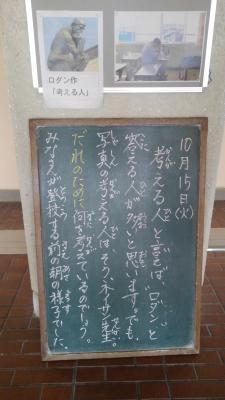 ロダン作
「考える人」
10月15日(火)
“考える人”と言えば“ロダン”と
答える人が多いと思います。でも、
写真の考える人はそう、ネイサン先生。
だれのために何を考えているのでしょう。
みなさんが登校する前の朝の様子でした。